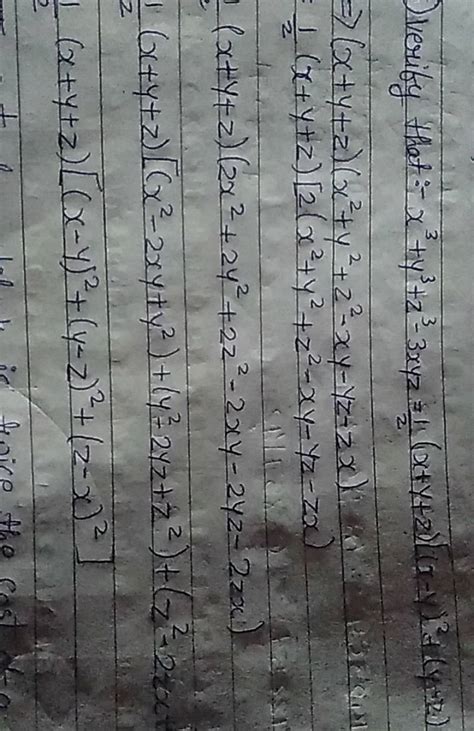 ) Verify that :- x³+y³+z³-3xyz = 1/2 (x+y+z)[(x-y)²+(y-z)
=> (x+y+z)(x²+y²+z²-xy-yz-zx)
= 1/2 (x+y+z)[2(x²+y²+z²-xy-yz-zx)
1/2 (x+y+z)(2x²+2y²+2z²-2xy-2yz-2zx)
1/2 (x+y+z)[(x²-2xy+y²)+(y²-2yz+z²)+(z²-2zx+
1/2 (x+y+z)[(x-y)²+(y-z)²+(z-x)²]
is twice the cost of a